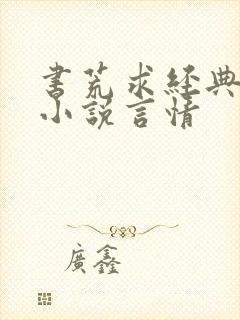 書荒求經典
小說言情
廣鑫